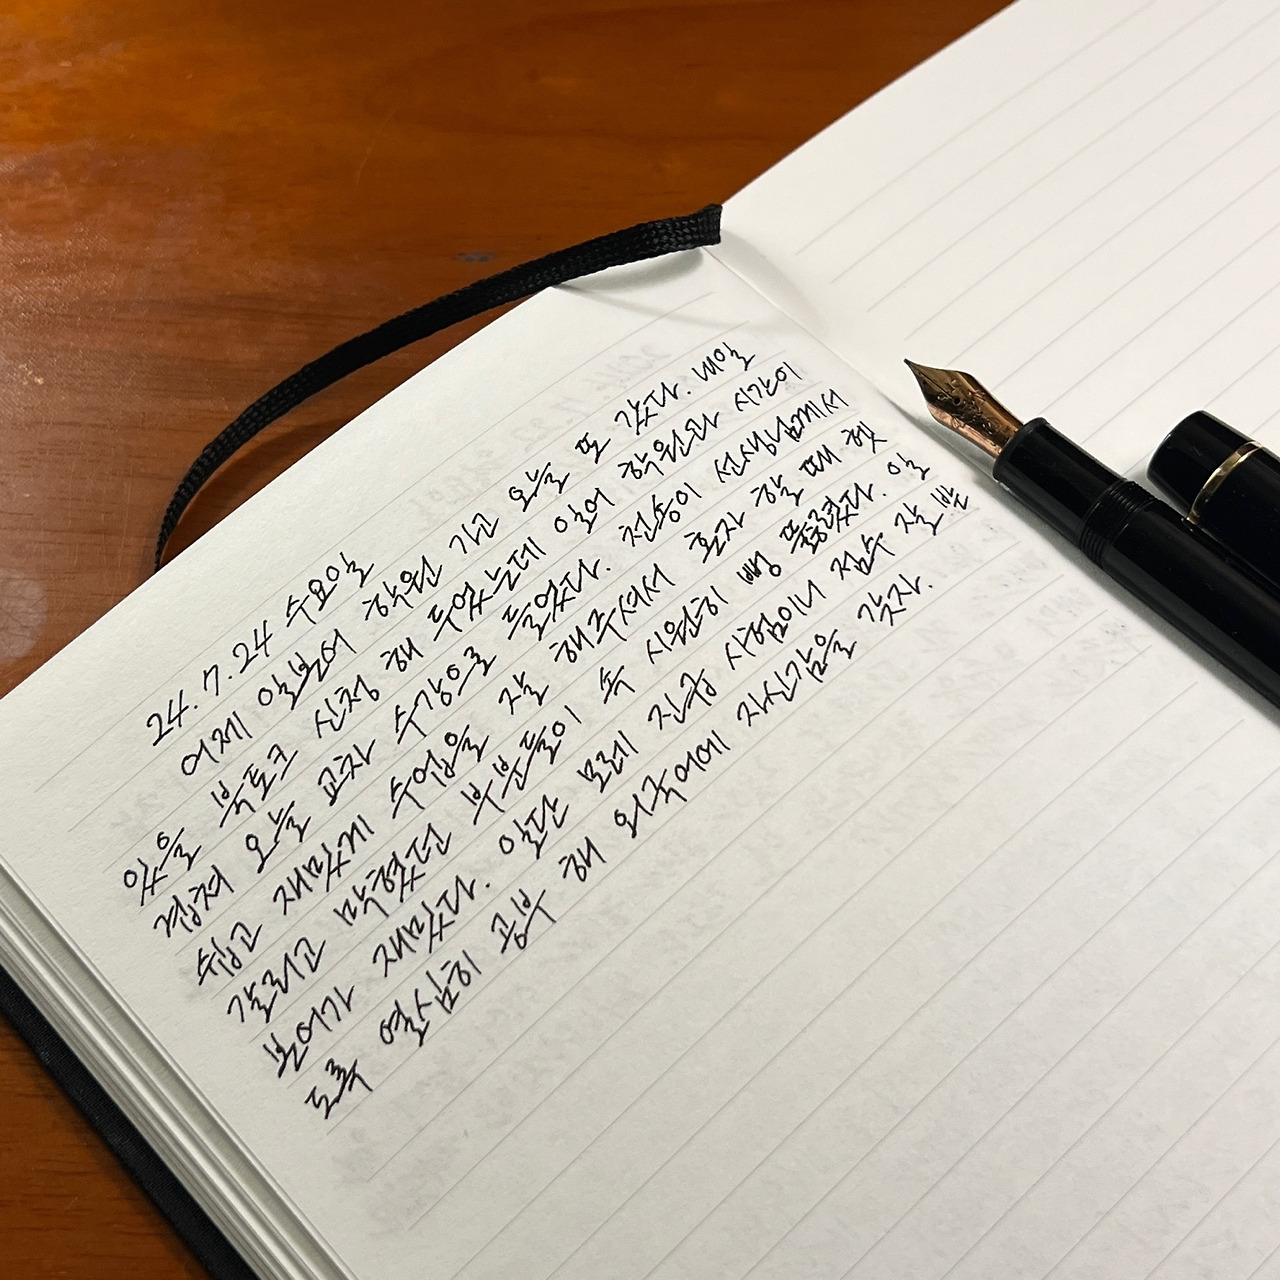 24. 7. 24 수요일
어제 일본어 학원 가고 오늘 또 갔다. 내일
있을 북토크 신청 해 두었는데 일어 학원과 시간이
겹쳐 오늘 교차 수강으로 들었다. 천승이 선생님께서
쉽고 재밌게 수업을 잘 해주셔서 혼자 할 때 헷
갈리고 막혔던 부분들이 속 시원히 뻥 뚫렸다. 일
본어가 재밌다. 일단 모레 진급 시험이니 점수 잘 받
도록 열심히 공부 해 외국어에 자신감을 갖자.